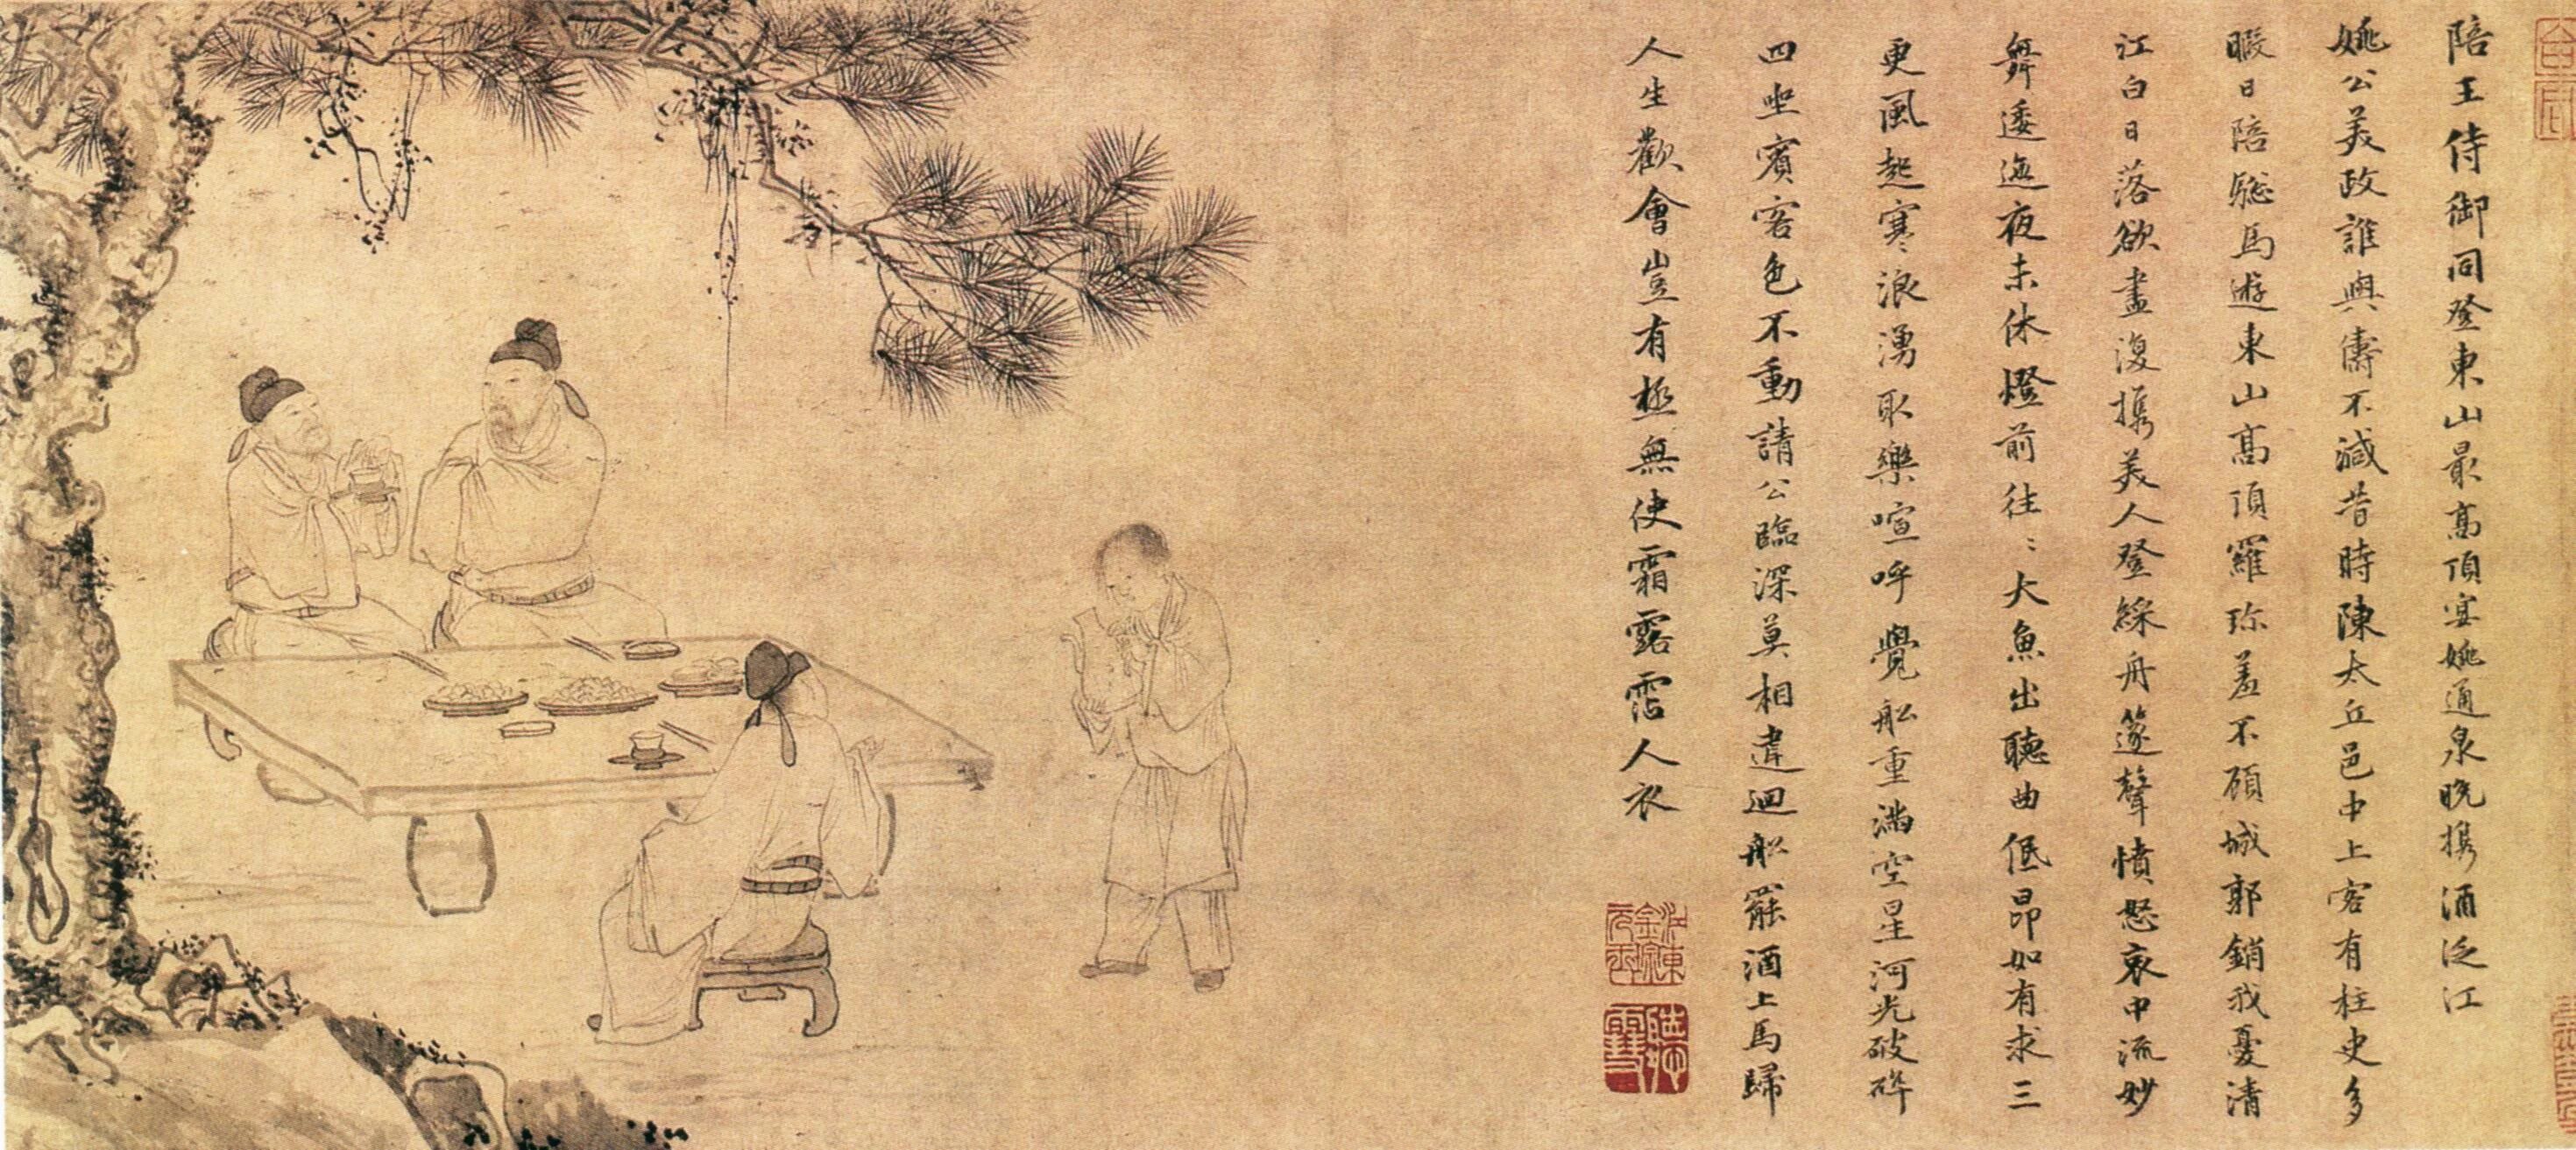 陪王侍御同登東山最髙頂宴姚通泉晚携酒泛江
姚公美政誰與儔不減昔時陳太丘邑中上客有柱史多
暇日陪騘馬遊東山髙頂羅珎羞不顧城郭銷我憂清
江白日落欲盡復携美人登綵舟篴聲憤怒哀中流妙
舞逶迤夜未休燈前往〻大魚出聽曲低昂如有求三
更風起寒浪湧取樂喧呼覺船重滿空星河光破碎
四坐賓客色不動請公臨深莫相違迴船罷酒上馬歸
人生歡會豈有極無使霜露霑人衣